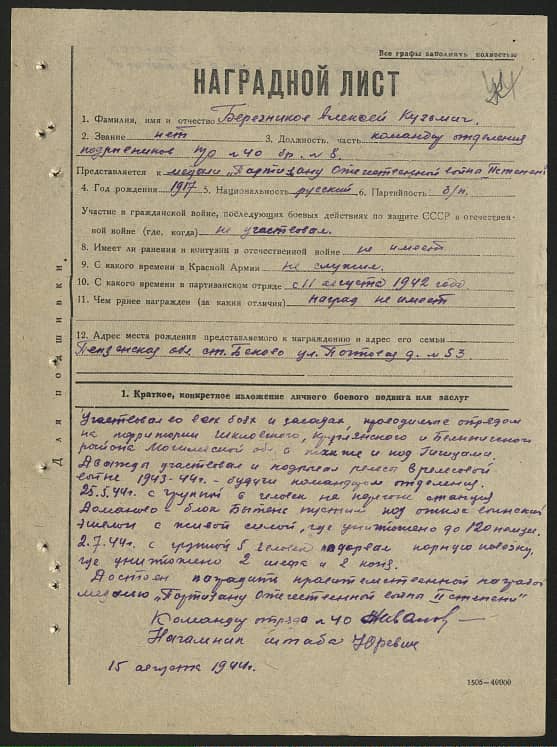 Все графы заполнять полностью
НАГРАДНОЙ ЛИСТ
1. Фамилия, имя и отчество Березников Алексей Кузьмич.
2. Звание нет 3. Должность, часть командир отделения
подрывников п/о №40 бр. №8.
Представляется к медали „Партизану Отечественной война II степени
4. Год рождения 1917 5. Национальность русский 6. Партийность б/п.
Участие в гражданской войне, последующих боевых действиях по защите СССР в отечествен-
ной войне (где, когда) не участвовал.
8. Имеет ли ранения и контузии в отечественной войне не имеет
9. С какого времени в Красной Армии не служил.
10. С какого времени в партизанском отряде с 11 августа 1942 года.
11. Чем ранее награжден (за какие отличия) наград не имеет
12. Адрес места рождения представляемого к награждению и адрес его семьи
Пензенская обл. ст. Беково ул. Почтовая д. №53
Для подшивки.
1. Краткое, конкретное изложение личного боевого подвига или заслуг
Участвовал во всех боях и засадах, проводимые отрядом
на территории Шкловского, Круглянского и Белыничского
района Могилевской обл. а также и под
Дважды участвовал и подрывал рельсы в рельсовой
войне 1943-44г. - будучи командиром отделения.
25.5.44г. с группой 6 человек на перегоне станция
Доманово - блок Бытень пустил под откос воинский
эшелон с живой силой, где уничтожено до 120 немцев.
2.7.44г. с группой 5 человек подорвал парную повозку,
где уничтожено 2 и 2 коня.
Достоин наградить правительственной наградой
медалью „Партизану Отечественной война II степени"
Командир отряда №40
Начальник штаба Юревич
15 августа 1944г.
1505—40000